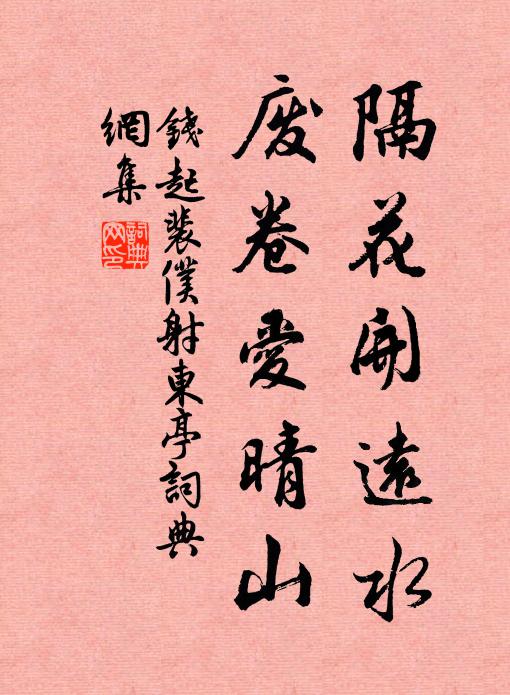 隔花開遠水
廢卷愛晴山
錢起裴僕射東亭詞典
網集
詞典
网印